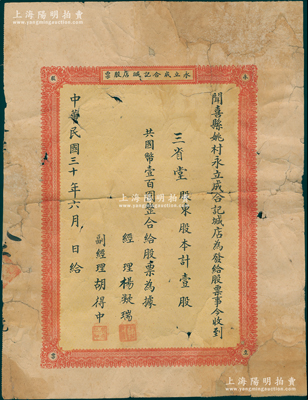 上海阳明拍卖
永立成合記堿店股票
聞喜縣姚村永立成合記堿店為發給股票事今收到
三省堂股東股本計壹股
共國幣壹百圓整合給股票為據
經理楊發瑞
副經理胡得中
中華民國三十年六月 日給
上海阳明拍卖